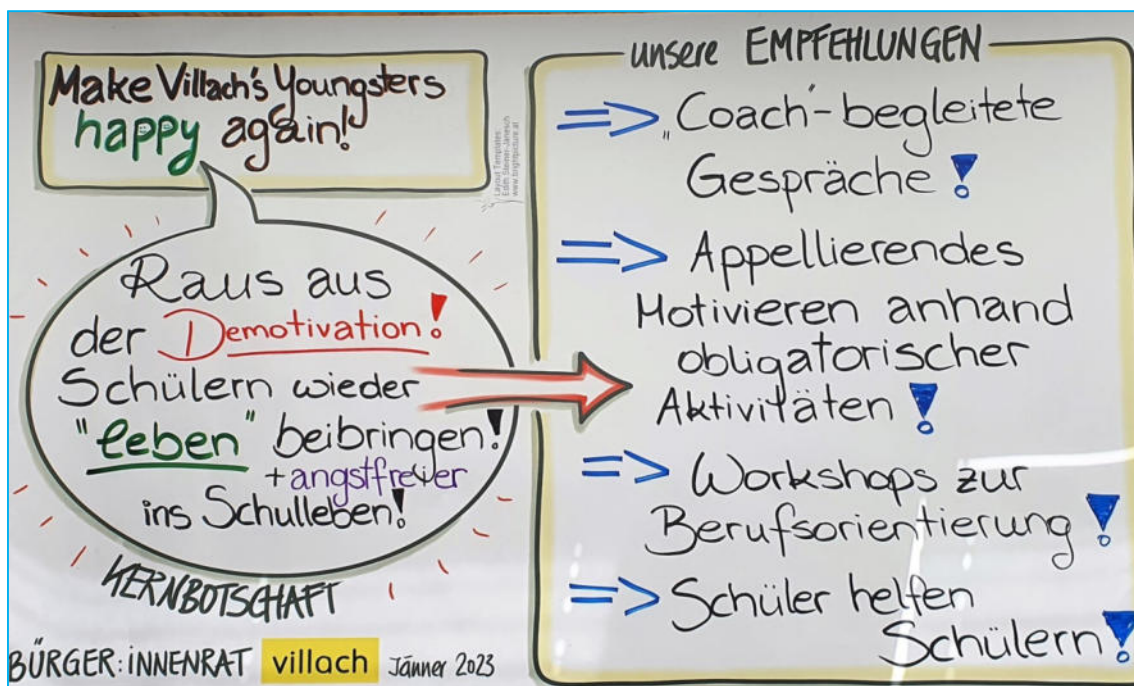 Make Villach's Youngsters
happy again!
Layout Templates:
Edith Steiner-Janesch
www.brightpicture.at
Raus aus
der Demotivation!
Schülern wieder
"leben" beibringen!
+ angstfreier
ins Schulleben!
KERNBOTSCHAFT
BÜRGER:iNNENRAT villach Jänner 2023
unsere EMPFEHLUNGEN
⇒ „Coach'-begleitete
Gespräche!
⇒ Appellierendes
Motivieren anhand
obligatorischer
Aktivitäten!
⇒ Workshops zur
Berufsorientierung!
⇒ Schüler helfen
Schülern!